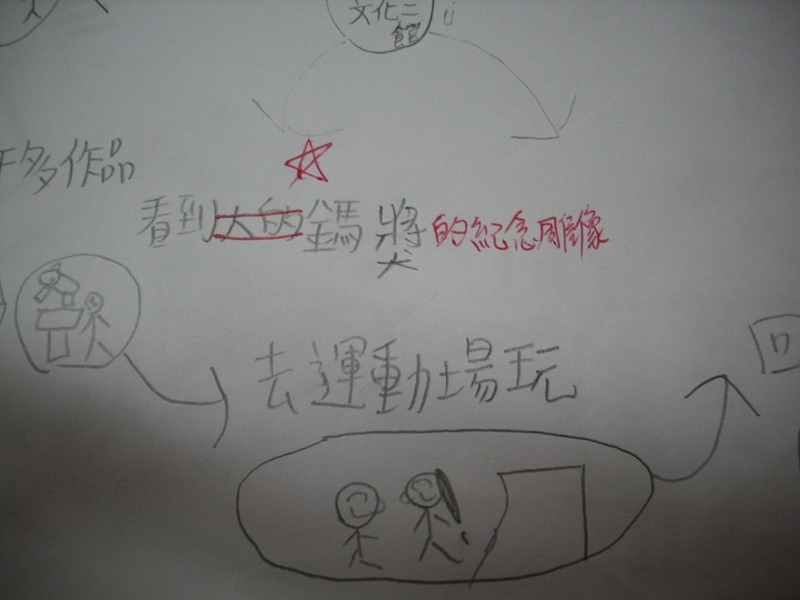 文化二
館
多作品
看到大的金馬獎的紀念雕像
去運動場玩
回